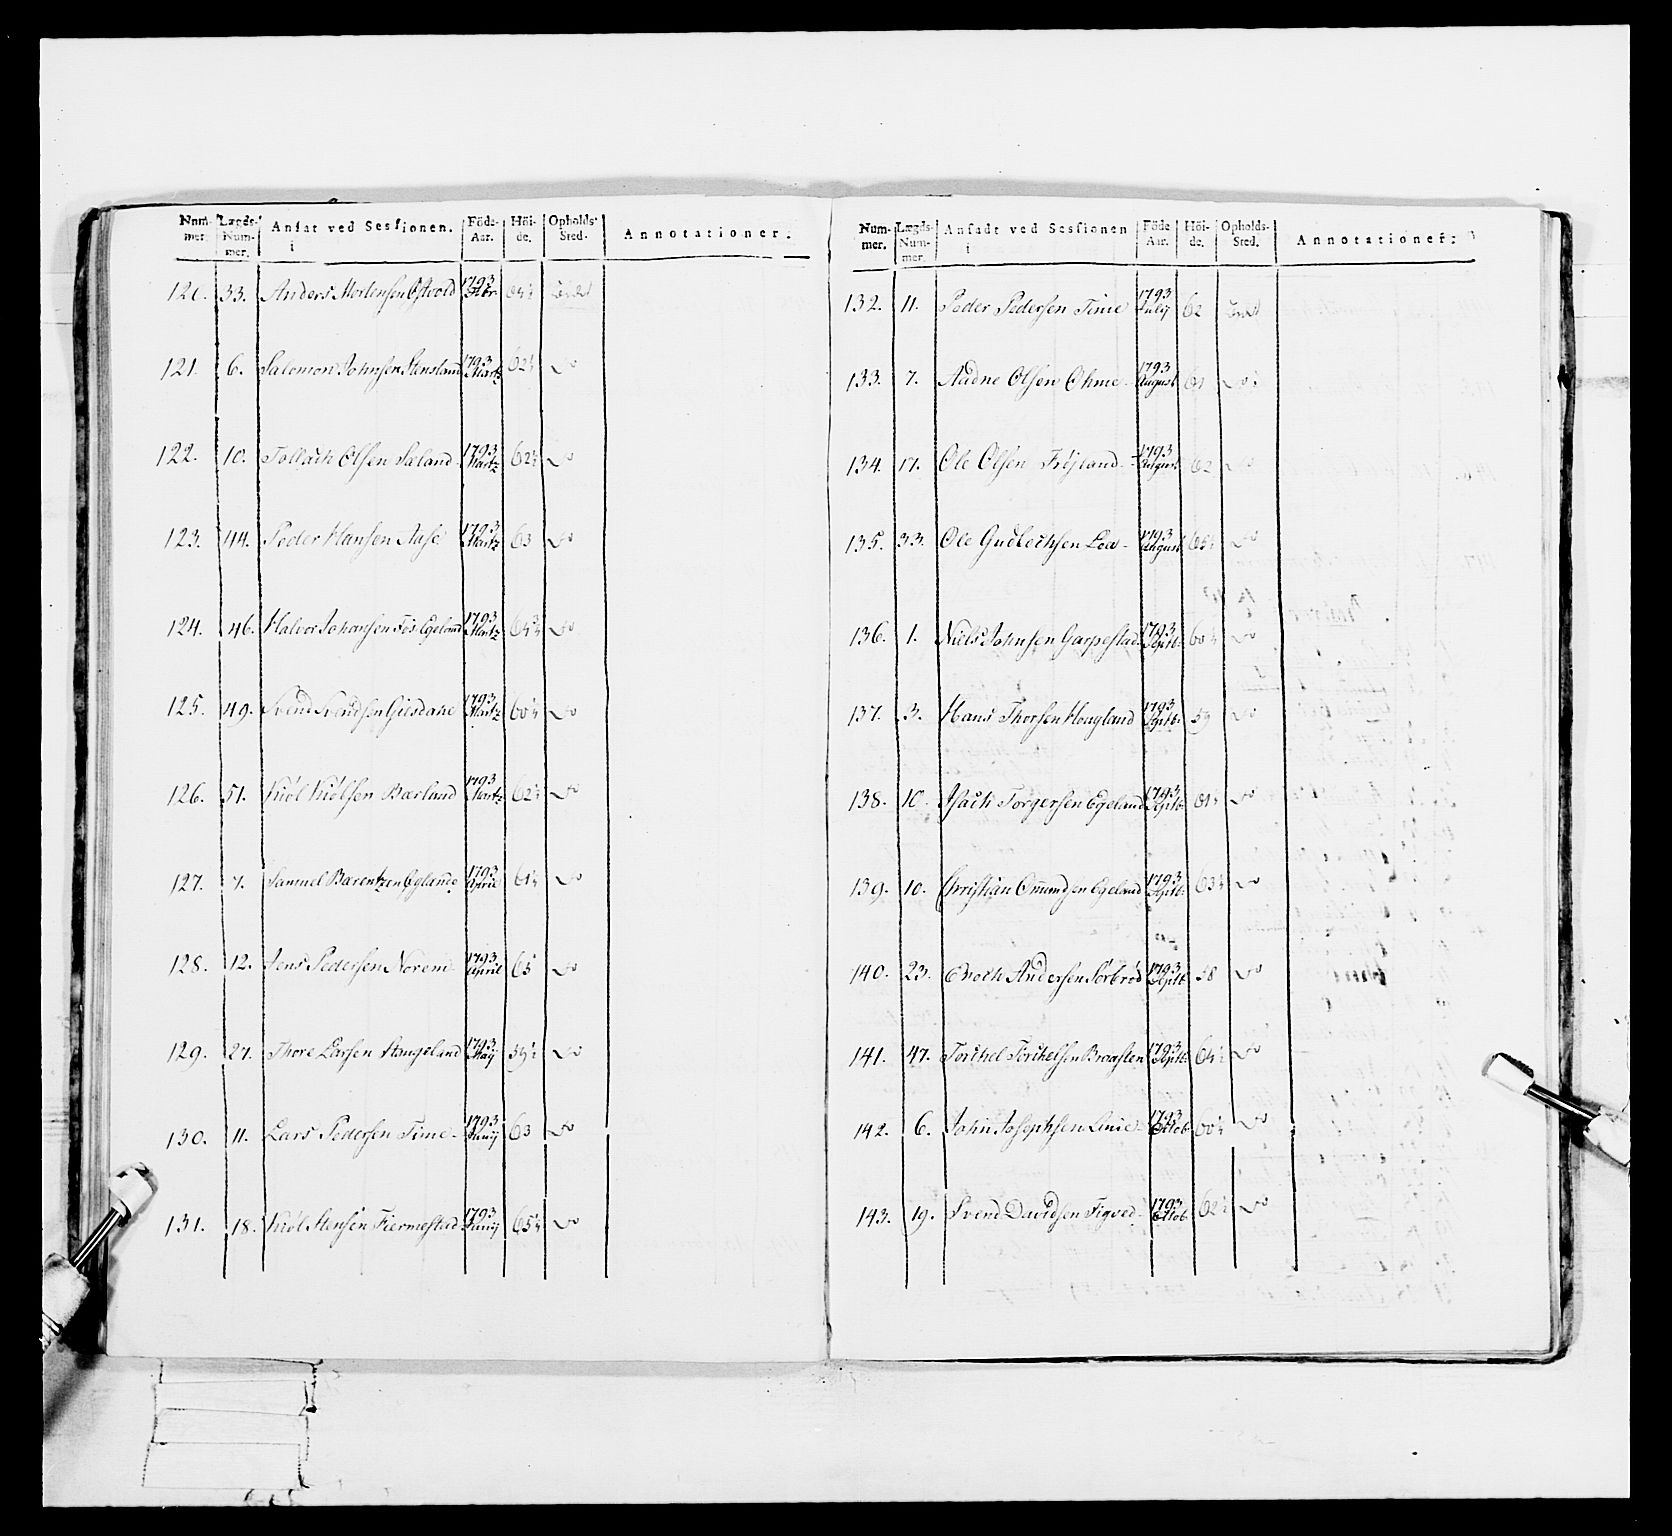 Num-mer. Lægds-Num-mer. Ansat ved Sessionen. i Föde-Aar. Höi-de. Opholds-Sted. Annotationer.
120. 33. Anders Mortensen Østvold 1793 Febr
121. 6. Salomon Johnsen Stensland 1793 Martz 62½ do
122. 10. Tollach Olsen Sæland 1793 Martz 62½ do
123. 44. Peder Hansen Aase 1793 Martz 63 do
124. 46. Halvor Johansen Fos Egeland 1793 Martz do
125. 49. Svend Svendsen Gilsdahe 1793 Martz 60½ do
126. 51. Kiöl Kiölsen Bærland 1793 Martz 62½ do
127. 7. Samuel Barentzen Eglande 1793 April 61½ do
128. 12. Jens Pedersen Norem 1793 April 65 do
129. 27. Thore Larsen Haugeland 1793 May 59½ do
130. 11. Lars Pedersen Time 1793 Juny 63 do
131. 18. Kiöl Stensen Fiermestad 1793 Juny 65½ do
Num-mer. Lægds-Num-mer. Ansadt ved Sessionen i Föde Aar. Höi-de. Opholds-Sted. Annotationer:
132. 11. Peder Pedersen Time 1793 July 62
133. 7. Aadne Olsen Ohme 1793 August 61 do
134. 17. Ole Olsen Fröjland 1793 August 62 do
135. 33. Ole Gudlechsen Lea 1793 August do
136. 1. Niels Johnsen Garpestad 1793 Septb: 60½ do
137. 3. Hans Thorsen Houyland 1793 Septb: 59 do
138. 10. Isach Torgersen Egeland 1793 Septb: 61½ do
139. 10. Christian Omundsen Egeland 1793 Septb: 63½ do
140. 23. Enoch Andersen Sörbröd 1793 Septb: 58 do
141. 47. Torchel Torchelsen Braasten 1793 Septb: 64½ do
142. 6. John Josephsen Linie 1793 Octob: 60½ do
143. 19. Svend Davidsen Tigved 1793 Octob: 62½ do